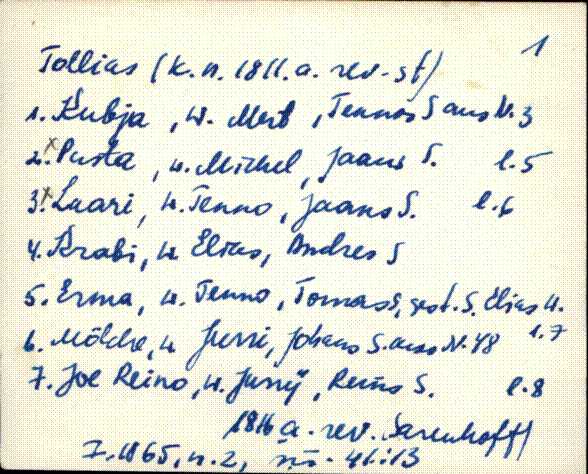 1
Tollias (k.n. 1811.a. rev-st)
1. Kubja, W. Mert, Tennos S aus N. 3
2. Pusta, W. Michel, Jaans S. l. 5
3. Laari, W. Tenno, Jaans S. l. 6
4. Krabi, W Elias, Andres S
5. Erma, W. Tenno, Tomas S, gest. S. Elias W.
l. 7
6. Mölder, W Jurri, Johans S. aus N. 48
7. Joe Reino, W. Jurry, Reins S. l. 8
1816 a. rev. Sarenhoff)
7. 1865, n. 2, 41:13